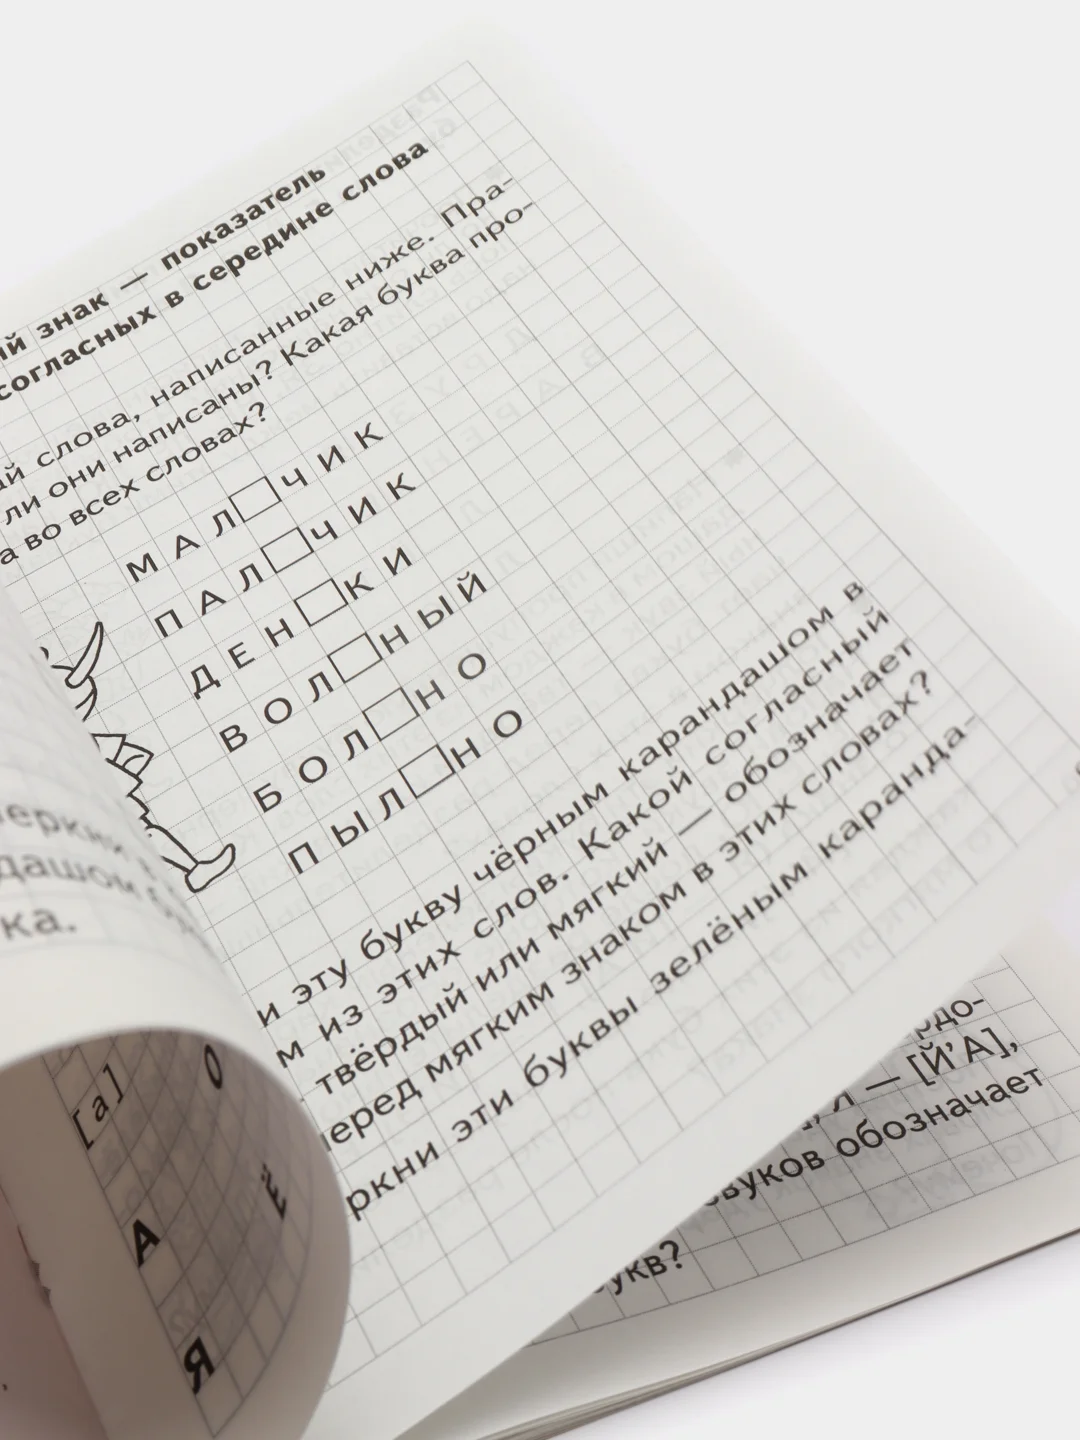 знак — показатель
согласных в середине слова
слова, написанные ниже. Пра-
ли они написаны? Какая буква про-
а во всех словах?
МАЛ□ЧИК
ПАЛ□ЧИК
ДЕН□КИ
ВОЛ□НЫЙ
БОЛ□НО
ПЫЛ□НО
и эту букву чёрным карандашом в
м из этих слов. Какой согласный
твёрдый или мягкий — обозначает
перед мягким знаком в этих словах?
ркни эти буквы зелёным каранда-
ка.
[а] О
А Ё
Я
рдо-
я — [Й’А],
звуков обозначает
букв?